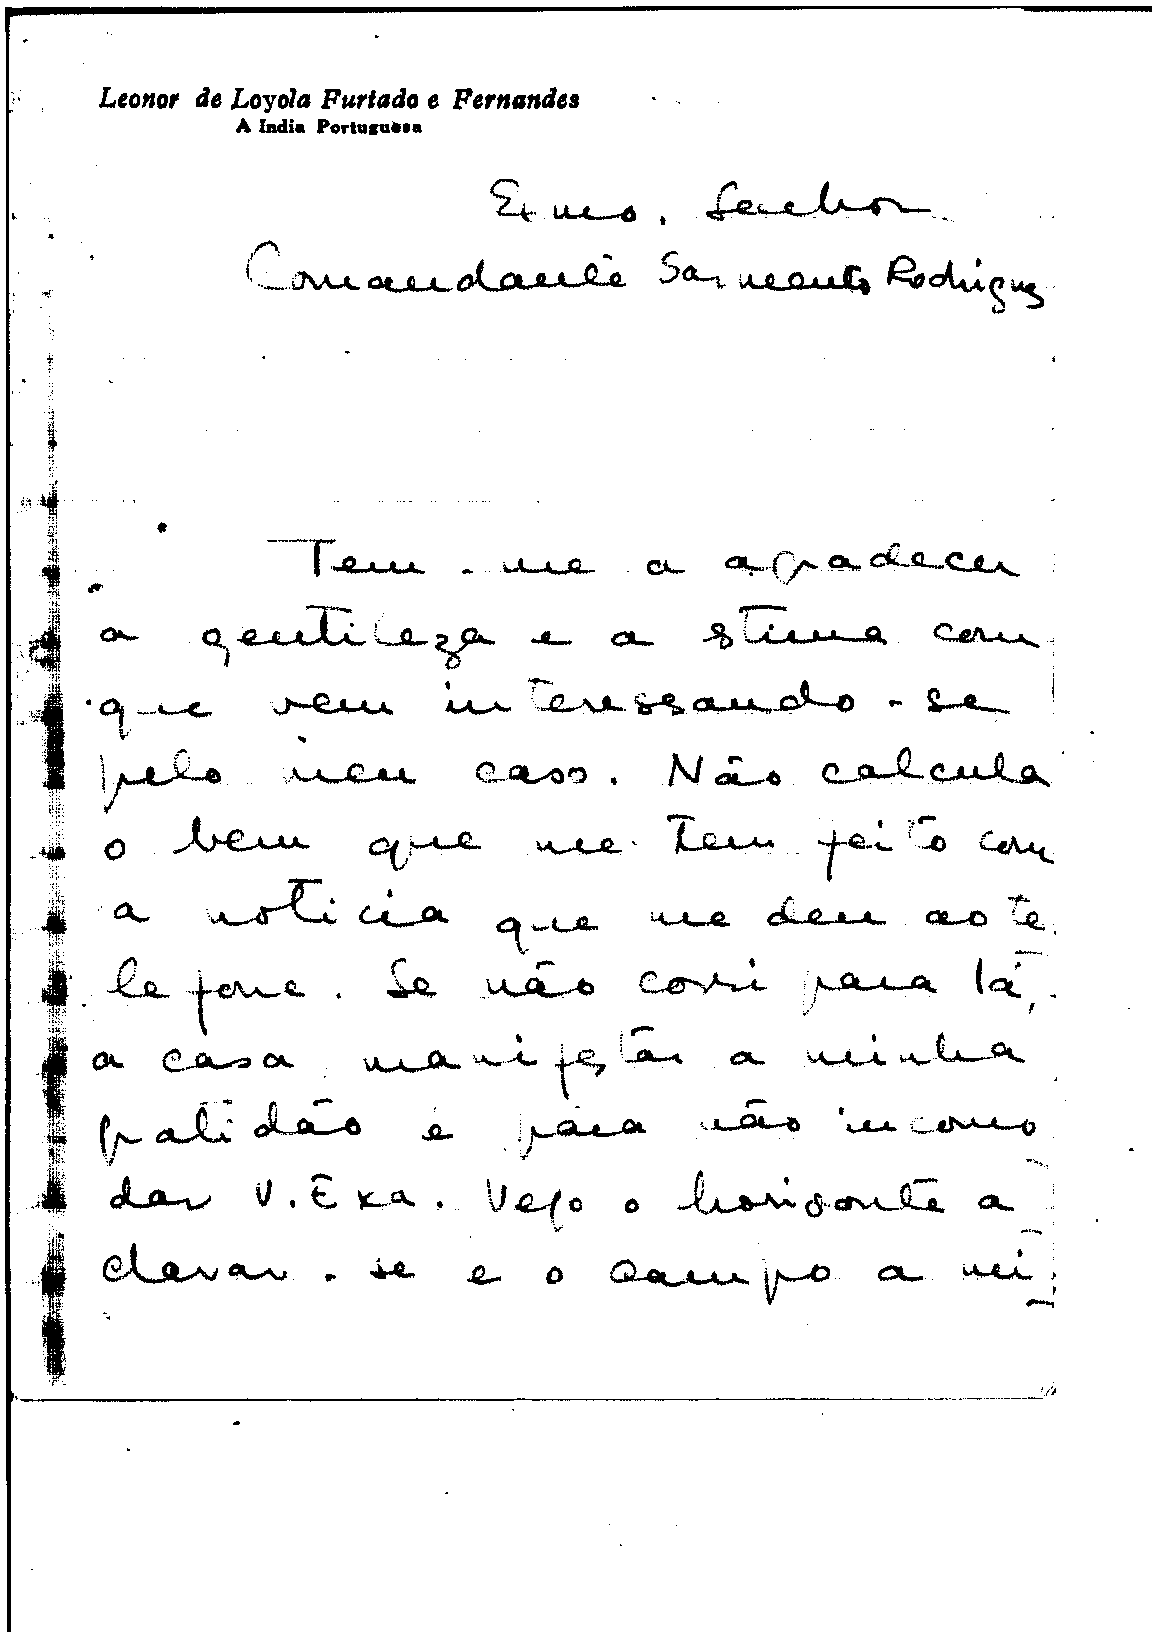 Leonor de Loyola Furtado e Fernandes
A India Portuguesa
Exmo. Senhor
Comandante Sarmento Rodrigues
Tem-me a agradecer
a gentileza e a stima com
que vem interessando-se
pelo meu caso. Não calcula
o bem que me tem feito com
a noticia que me deu ao te
lefone. Se não corri para lá,
a casa manifestar a minha
gratidão é para não incomo
dar V. Exa. Vejo o horizonte a
clarar-se e o campo a mi